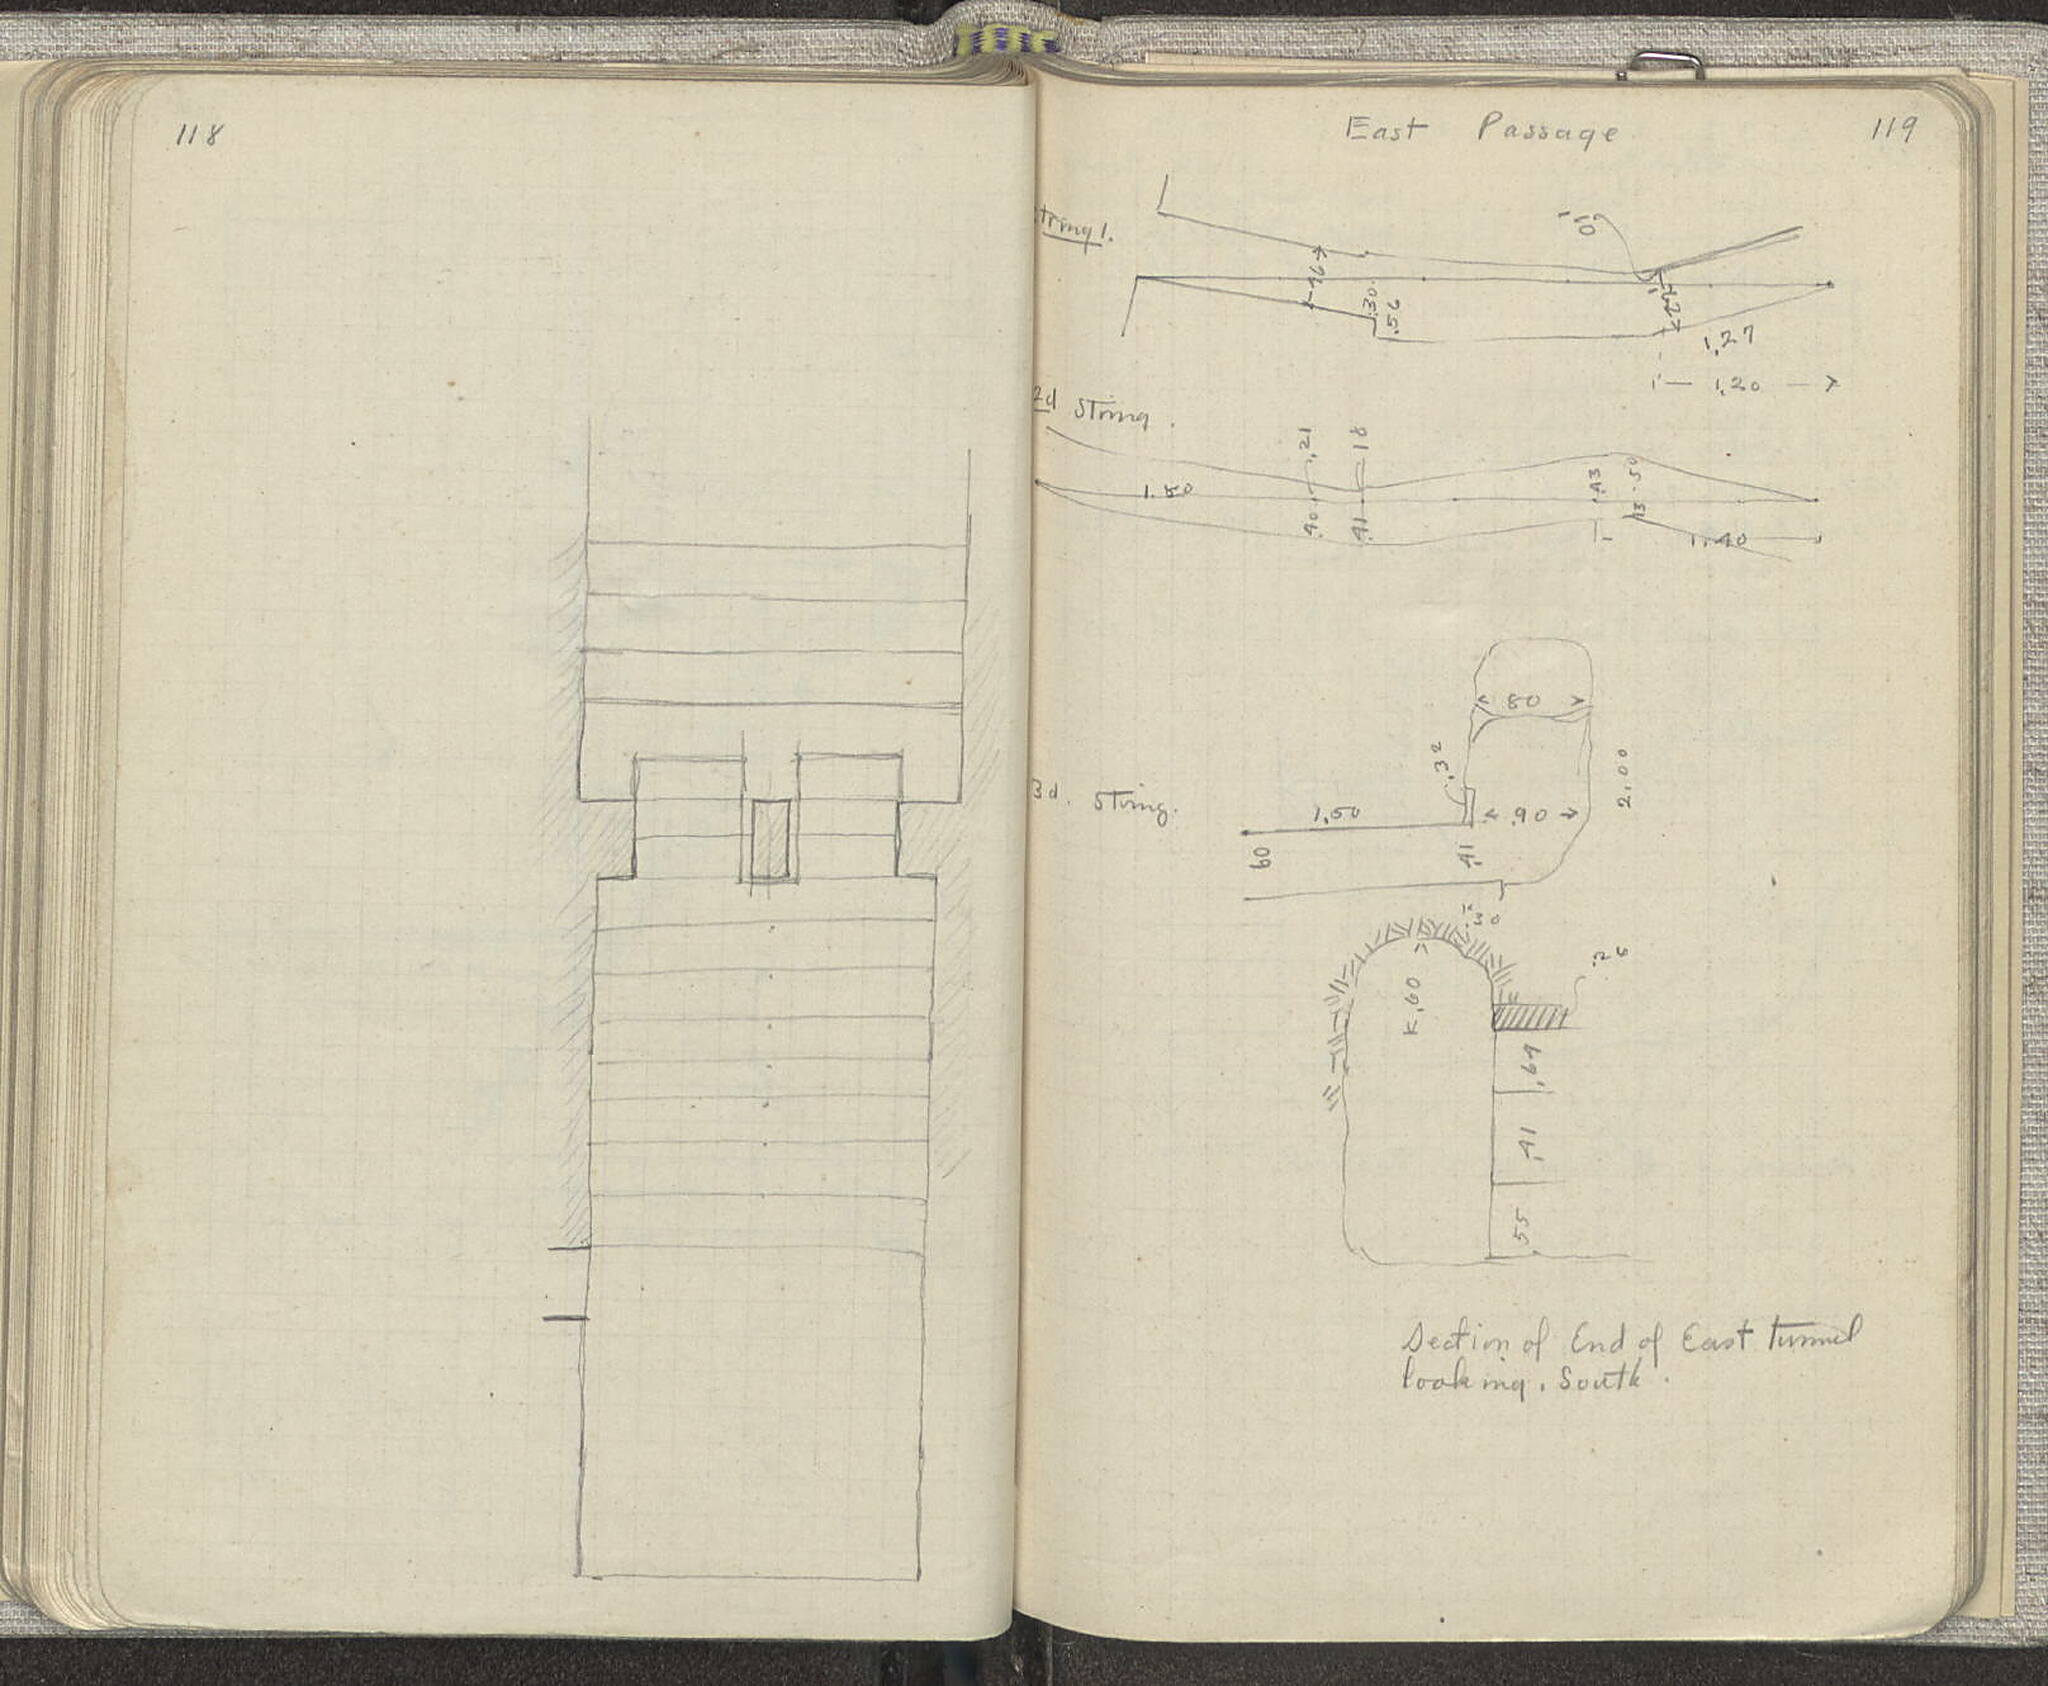 118
East Passage
119
String 1.
.10
.46
.30
.56
1,27
1,20
2d String.
,21
18
1.80
.40
.41
.43
.50
.13
1.40
80
,32
3d. String.
1,50
90
2,00
60
,41
.30
,60
,64
,41
55
Section of End of East tunnel
looking. South.